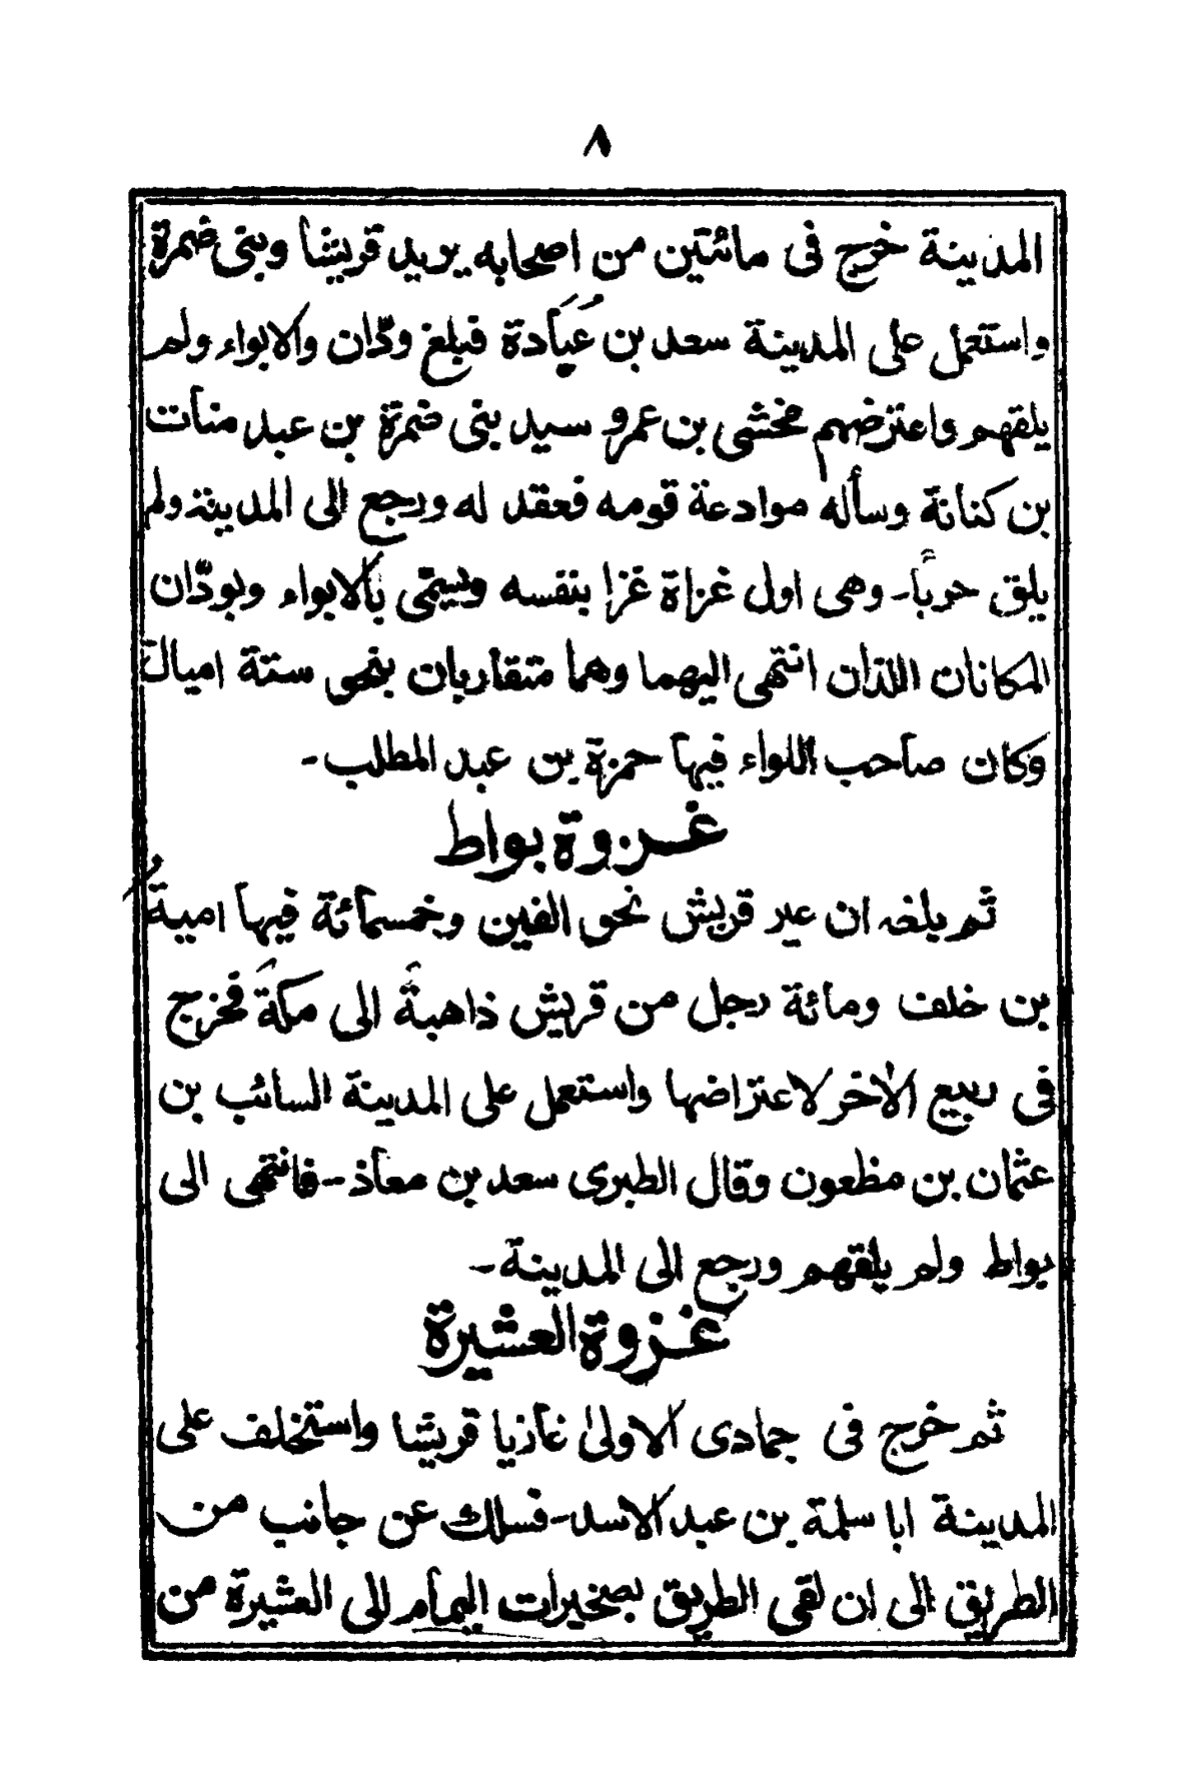 ٨
المدينة خرج فى مائتين من اصحابه يريد قريشا وبنى ضمرة
واستعمل على المدينة سعد بن عُبَادة فبلغ ودّان والابواء ولم
يلقهم واعترضهم مخشى بن عمرو سيد بنى ضمرة بن عبد منات
بن كنانة وسأله موادعة قومه فعقد له ورجع الى المدينة ولم
يلق حرباً - وهى اول غزاة غزا بنفسه ويسمّى بالابواء وبودّان
المكانان اللذان انتهى اليهما وهما متقاربان بنحو ستة اميال
وكان صاحب اللواء فيها حمزة بن عبد المطلب -
غزوة بواط
ثم بلغه ان عير قريش نحو الفين وخمسمائة فيها اميةُ
بن خلف ومائة رجل من قريش ذاهبةً الى مكةَ فخرج
فى ربيع الاٰخر لاعتراضها واستعمل على المدينة السائب بن
عثمان بن مظعون وقال الطبرى سعد بن معاذ - فانتهى الى
بواط ولم يلقهم ورجع الى المدينة -
غزوة العشيرة
ثم خرج فى جمادى الاولىٰ غازيا قريشا واستخلف على
المدينة ابا سلمة بن عبد الاسد - فسلك عن جانب من
الطريق الى ان لقى الطريق بصخيرات اليمام الى العشيرة من